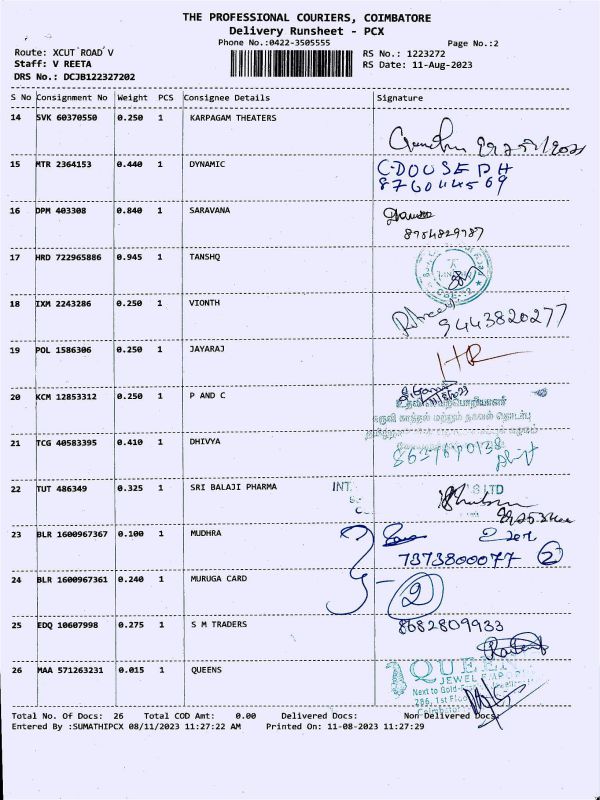 THE PROFESSIONAL COURIERS, COIMBATORE
Delivery Runsheet - PCX
Phone No.:0422-3505555 Page No.:2
Route: XCUT ROAD V RS No.: 1223272
Staff: V REETA RS Date: 11-Aug-2023
DRS No.: DCJB122327202
S No Consignment No Weight PCS Consignee Details Signature
14 SVK 60370550 0.250 1 KARPAGAM THEATERS
15 MTR 2364153 0.440 1 DYNAMIC C-DOUSEPH
876044569
16 DPM 403308 0.840 1 SARAVANA
8754829787
17 HRD 722965886 0.945 1 TANSHQ
18 IXM 2243286 0.250 1 VIONTH
9443820277
19 POL 1586306 0.250 1 JAYARAJ HR
20 KCM 12853312 0.250 1 P AND C
21 TCG 40583395 0.410 1 DHIVYA
22 TUT 486349 0.325 1 SRI BALAJI PHARMA INT. S LTD
23 BLR 1600967367 0.100 1 MUDHRA
7373800077 2
24 BLR 1600967361 0.240 1 MURUGA CARD 2
25 EDQ 10607998 0.275 1 S M TRADERS 8682809933
26 MAA 571263231 0.015 1 QUEENS QUEEN
JEWEL EMPOR
Next to Gold
286, 1st Flo
Coimbator
Total No. Of Docs: 26 Total COD Amt: 0.00 Delivered Docs: Non Delivered Docs:
Entered By :SUMATHIPCX 08/11/2023 11:27:22 AM Printed On: 11-08-2023 11:27:29